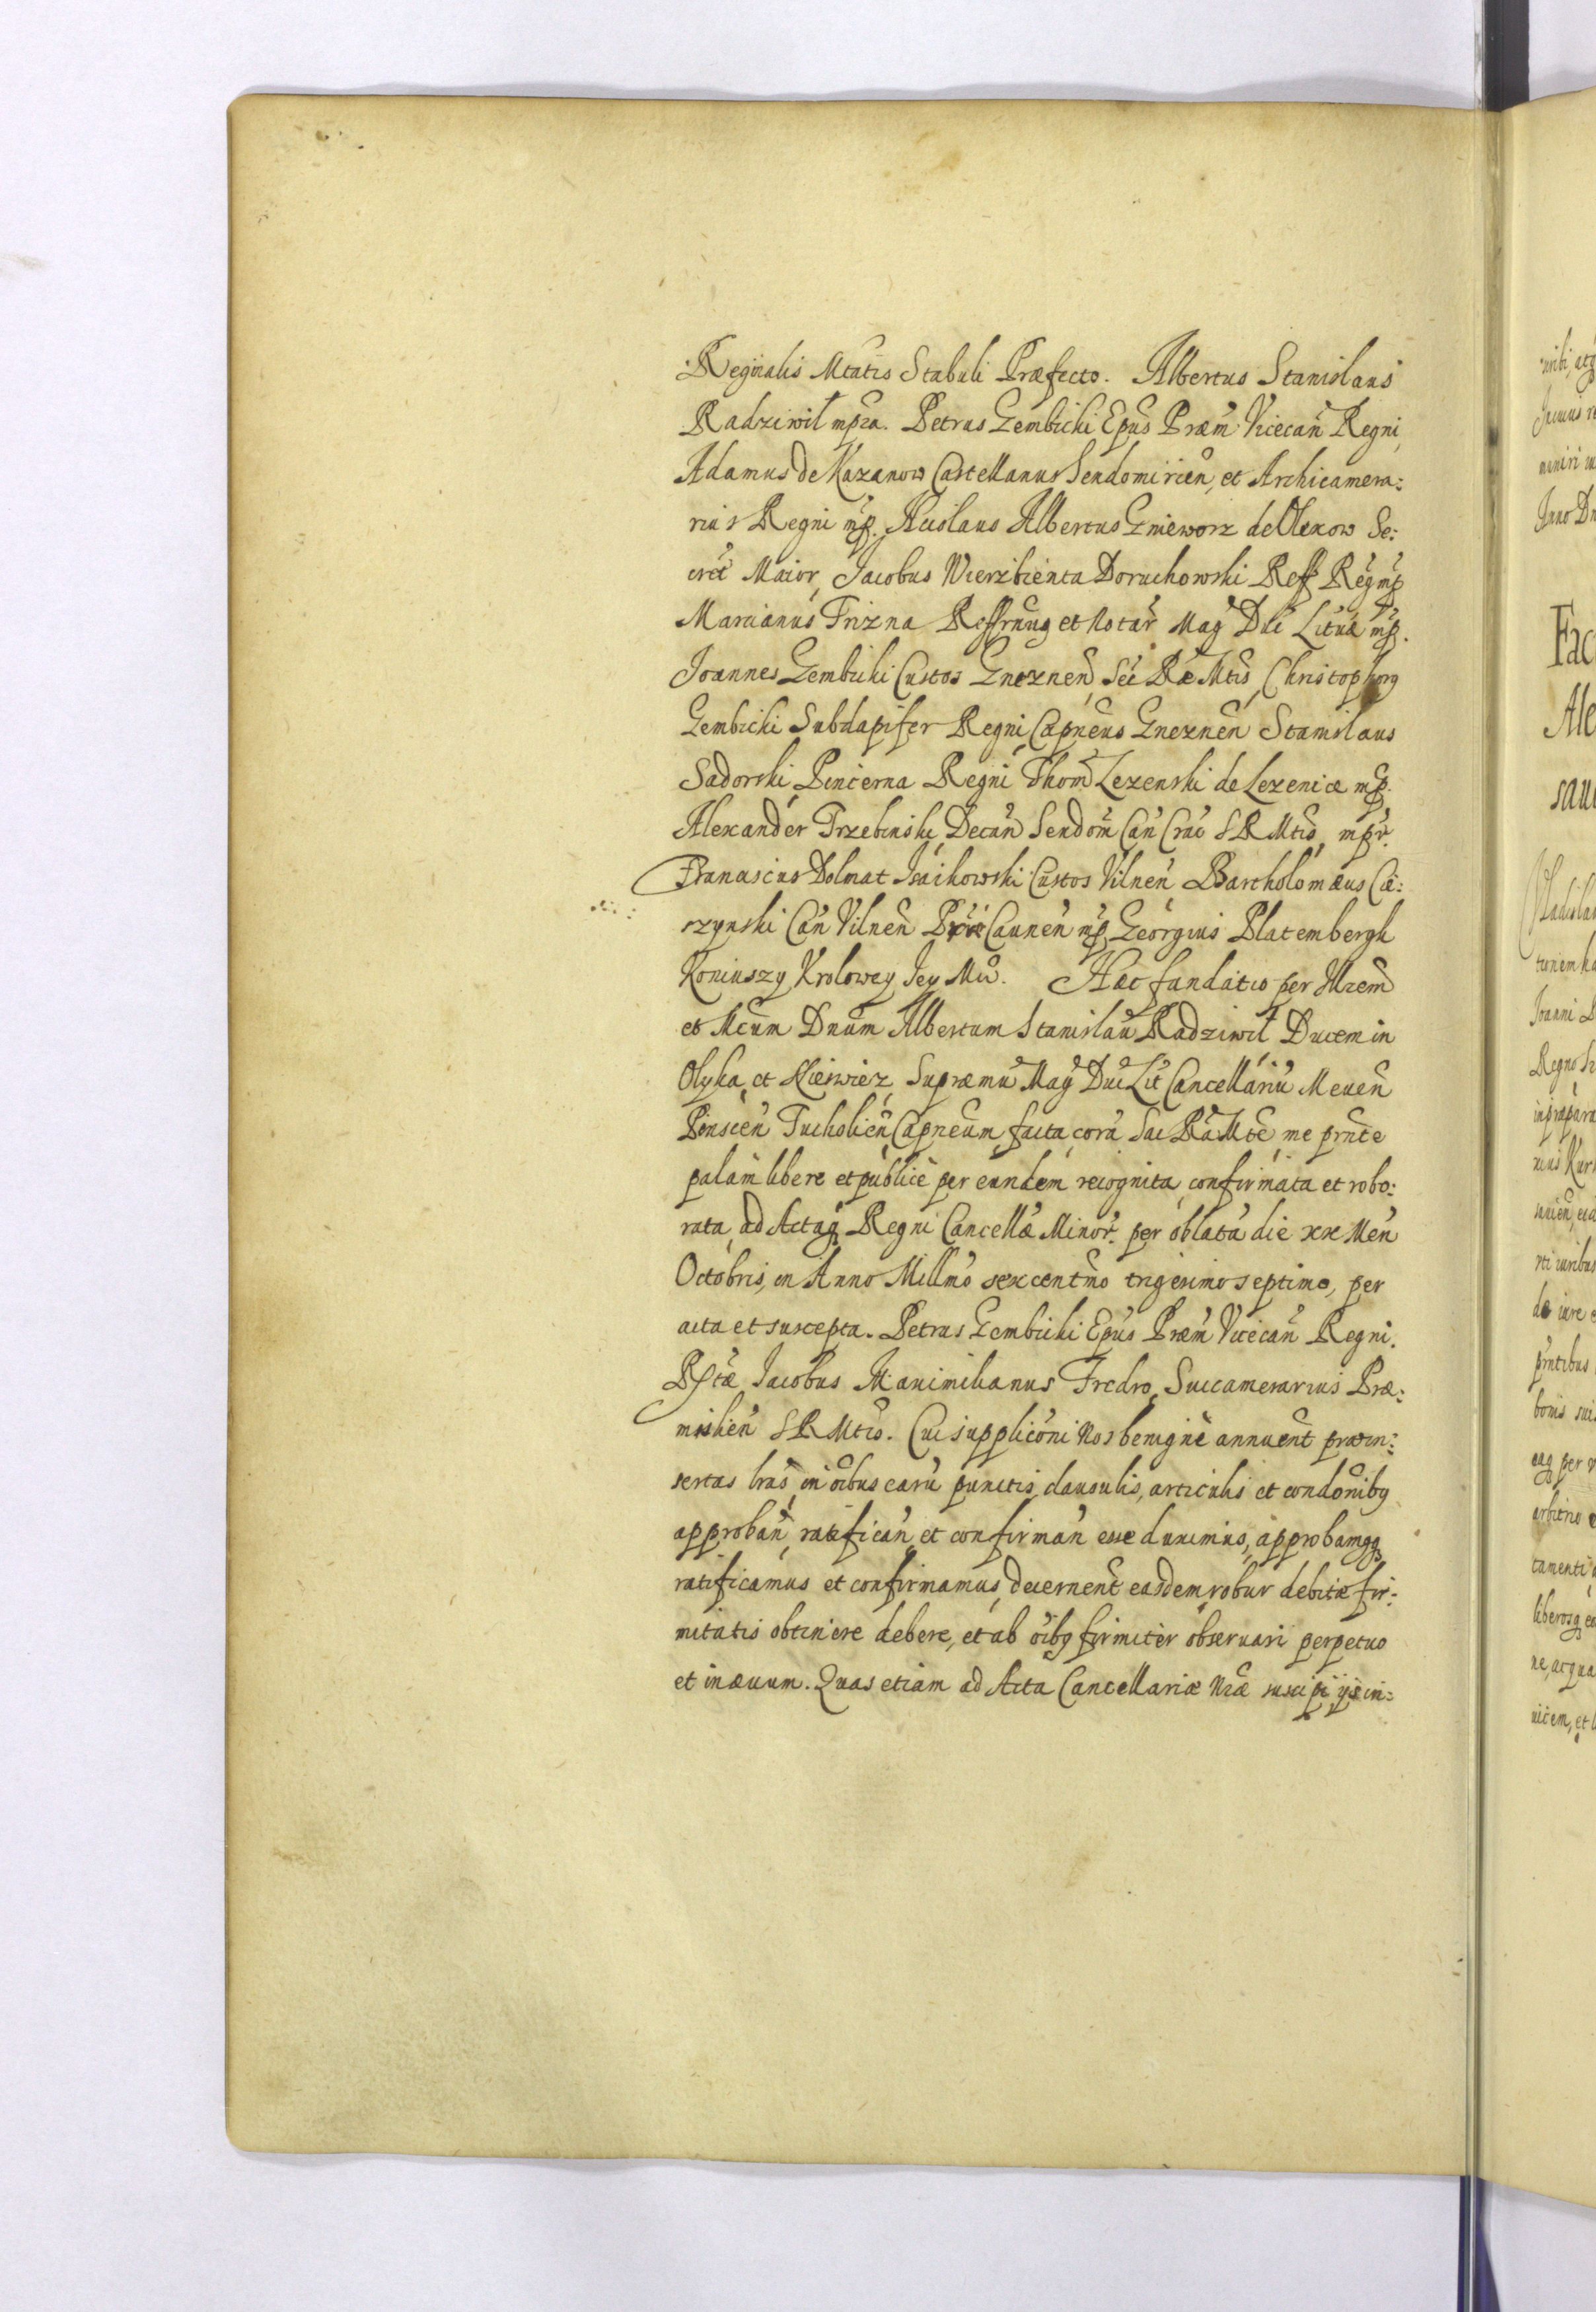 Reginalis Mtatis Stabuli Præfecto. Albertus Stanislaus
Radziwil mpra. Petrus Gembicki Epus Præm Vicecan Regni,
Adamus de Kazanow Castellanus Sendomirien, et Archicamera:
rius Regni mp. Aeislaus Albertus Gniewosz de Olexow Se:
cret Maior, Jacobus Wierzbienta Doruchowski Reff Reg mp
Marcianus Trizna Reffrnus et Notar Mag Duc Lituæ mp.
Joannes Gembicki Custos Gneznen, Sec Ræ Mtis, Christophorus
Gembicki Subdapifer Regni, Capneus Gneznen Stanislaus
Sadorski, Pincerna Regni Thom Lezenski de Lezenice mp.
Alexander Trzebinski, Decan Sendom Can Crac S R Mtis, mpr.
Franciscus Dolmat Isaikowski Custos Vilnen Bartholomæus Cie:
rzynski Can Vilnen Caunen mp Georgius Platembergk
Koniuszy Krolowey Jey Mci. Hæc fundatio per Illrem
et Mcum Dnum Albertum Stanislau Radziwil Ducem in
Olyka, et Nieswiez, Supremu Mag Duc Lit Cancellariu Meuen
Pinscen Tucholien Capneum, facta cora Sac Ra Mte, me prnte
palam libere et publice per eundem recognita, confirmata et robo:
rata, ad Actaq Regni Cancellæ Minor. per oblata die xx Men
Octobris, in Anno Millmo sexcentmo trigesimo septimo, per
acta et suscepta. Petrus Gembicki Epus Præm Vicecan Regni.
Jacobus Maximilianus Fredro, Succamerarius Præ:
mislien S R Mtis. Cui supplicôni Nos benigne annuent præin:
sertas lras, in oibus earu punctis, clausulis, articulis et condonibus
approban, ratifican, et confirman esse duximus, approbamusq
ratificamus et confirmamus, decernent easdem, robur debitæ fir:
mitatis obtinere debere, et ab oibus firmiter obseruari perpetuo
et inæuum. Quas etiam ad Acta Cancellariæ Nræ suscipi, ijs in: